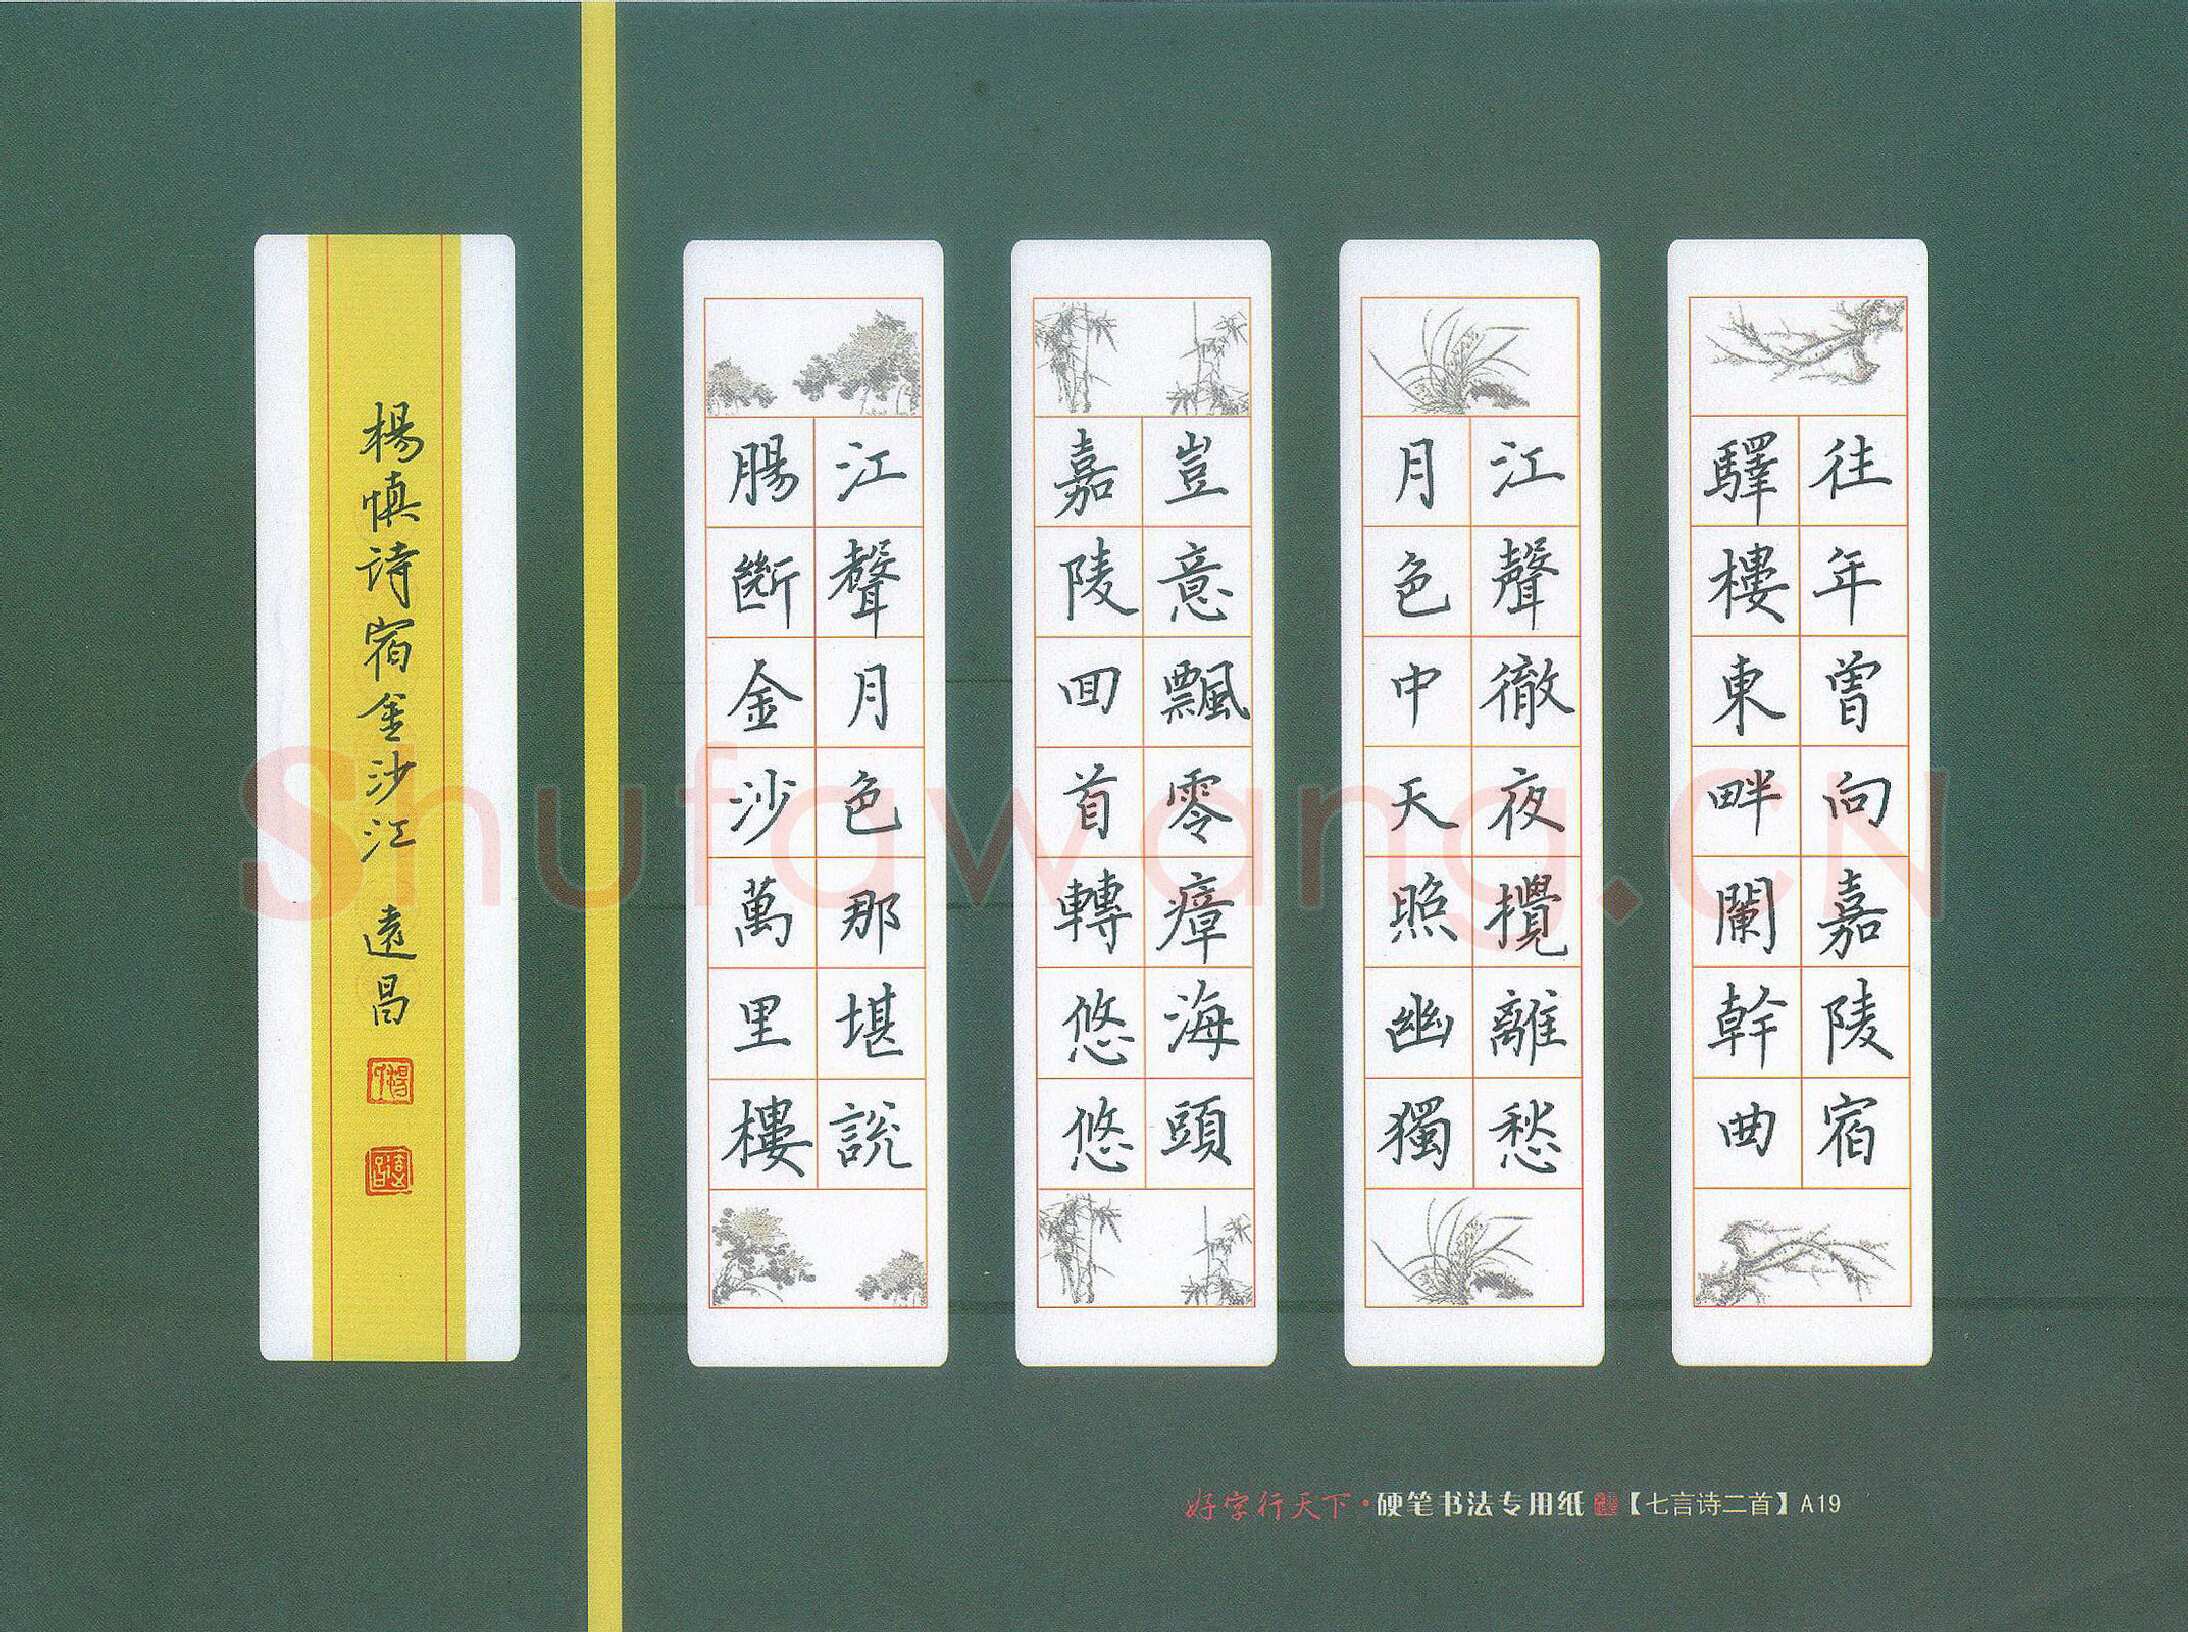 往年曾向嘉陵宿
驛樓東畔闌幹曲
江聲徹夜攪離愁
月色中天照幽獨
豈意飄零瘴海頭
嘉陵回首轉悠悠
江聲月色那堪說
腸斷金沙萬里樓
楊慎诗宿金沙江 遠昌
好字行天下·硬笔书法专用纸【七言诗二首】A19
Shufawang.CN